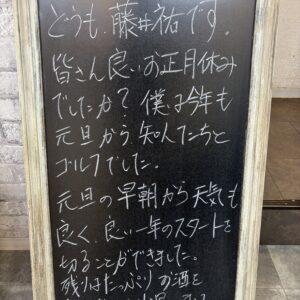 どうも、藤井祐です。
皆さん良いお正月休み
でしたか？僕は今年も
元旦から、知人たちと
ゴルフでした。
元旦の早朝から天気も
良く、良い一年のスタートを
切ることができました。
残りはたっぷりお酒を